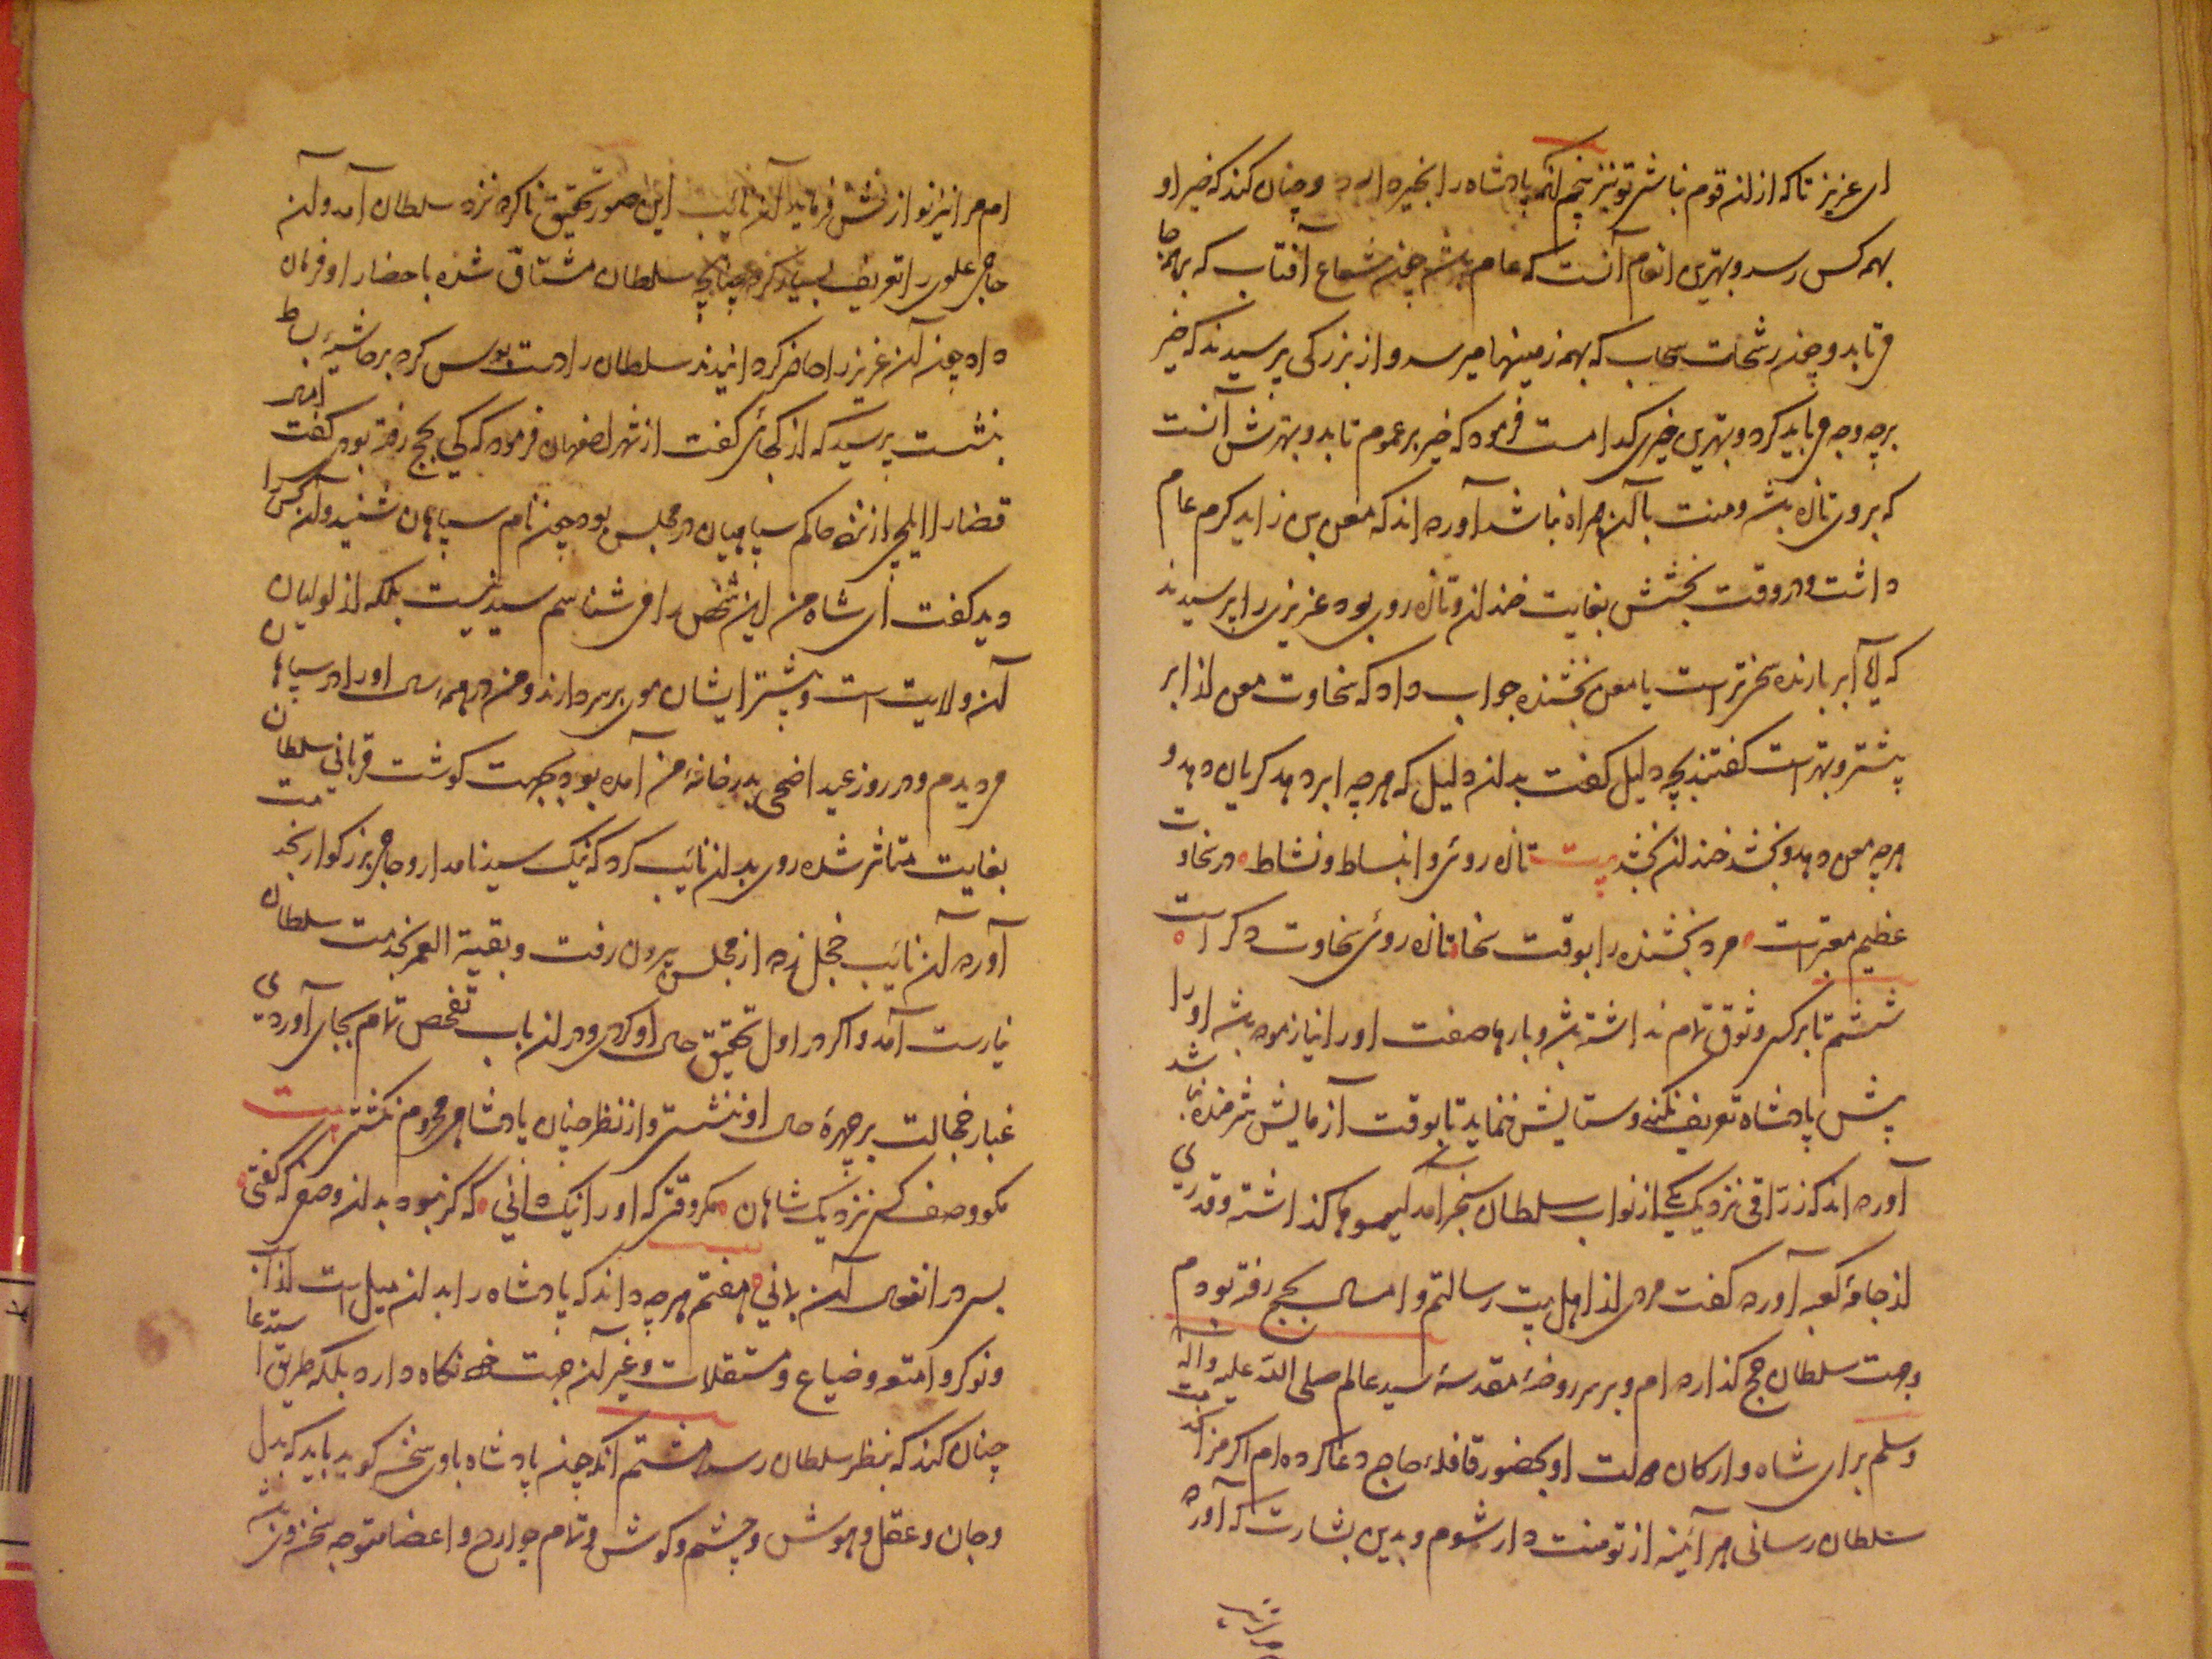 ای عزیز تا که ازان قوم نباشی تو نیز پنجم آنکه پادشاه را بخیر دارد و چنان کند که خیر او
بهمه کس رسد و بهترین انعام آنست که عام باشد چون شعاع آفتاب که بر همه جا
می تابد و چون رشحات سحاب که بهمه زمینها میرسد و از بزرگی پرسیدند که خیر
بر چه وجه می باید کرد و بهترین خیری کدامست فرمود که خیر بر عموم باید و بهترش آنست
که بروی تازه باشد و منت با آن همراه نباشد آورده اند که معن بن زاید کرم عام
داشت و در وقت بخشش بغایت خندان و تازه روی بود عزیزی را پرسیدند
که آیا ابر بارنده سخی تر است یا معن بخشنده جواب داد که سخاوت معن از ابر
بیشتر و بهتر است گفتند بچه دلیل گفت بدان دلیل که هر چه ابر دهد گریان دهد و
هر چه معن دهد و بخشد خندان بخشد بیت تازه روئی و انبساط و نشاط در سخاوت
عظیم معتبر است مرد بخشنده را بوقت سخا تازه روئی سخاوت دگر است
ششم تا بر کسی وثوق تمام نداشته باشد و بارها صفت او را نیازموده باشد او را
پیش پادشاه تعریف نکند و ستایش ننماید تا بوقت آزمایش شرمنده نباشد
آورده اند که زراقی نزدیک یکی از نواب سلطان سنجر آمد گیسوها گذاشته و قدری
از جامهٔ کعبه آورده گفت مردی از اهل بیت رسالتم و امسال بحج رفته بودم
و جهت سلطان حج گذارده ام و بر سر روضهٔ مقدسهٔ سید عالم صلی الله علیه و آله
وسلم برای شاه و ارکان دولت او بحضور قافلهٔ حاج دعا کرده ام اگر مرا بخدمت
سلطان رسانی هر آئینه از تو منت دار شوم و بدین بشارت که آورده
ام مرا نیز نوازش فرماید آن نائب این صورت تحقیق ناکرده نزد سلطان آمد و آن
حاجی علوی را تعریف بسیار کرد چنانچه سلطان مشتاق شده باحضار او فرمان
داد چون آن عزیز را حاضر گردانیدند سلطان را دست بوس کرد بر حاشیهٔ بساط
بنشست پرسید که از کجائی گفت از شهر اصفهان فرمود که کی بحج رفته بودی گفت امسال
قضا را ایلچی از نزد حاکم سپاهیان در مجلس بود چون نام سپاهان شنید و آن کس را
دید گفت ای شاه من این شخص را می شناسم سید نیست بلکه از لولیان
آن ولایت است و بیشتر ایشان موی بر سر دارند و من در همه سال او را در سپاهان
می دیدم و در روز عید اضحی بدر خانهٔ من آمده بود بجهت گوشت قربانی سلطان
بغایت متاثر شده روی بدان نائب کرد که نیک سید نامدار و حاجی بزرگوار بخدمت
آورده آن نائب خجل زده از مجلس بیرون رفت و بقیة العمر بخدمت سلطان
نیارست آمد و اگر در اول تحقیق حال او کردی و در ان باب تفحص تمام بجای آوردی
غبار خجالت بر چهرهٔ حال او ننشستی و از نظر چنان پادشاهی محروم نگشتی بیت
مگو وصف کس نزدیک شاهان مگر وقتی که او را نیک دانی که گر نبود بدان وصفی که گفتی
بسی در انفعال آن بمانی هفتم هر چه داند که پادشاه را بدان میل است از اسباب
و نوکر و امتعه و ضیاع و مستغلات و غیر آن جهت خود نگاه ندارد بلکه طریق استدعا
چنان کند که بنظر سلطان رسد هشتم آنکه چون پادشاه باوی سخن گوید باید که بدل
و جان و عقل و هوش و چشم و گوش و تمام جوارح و اعضا متوجه سخن وی باشد